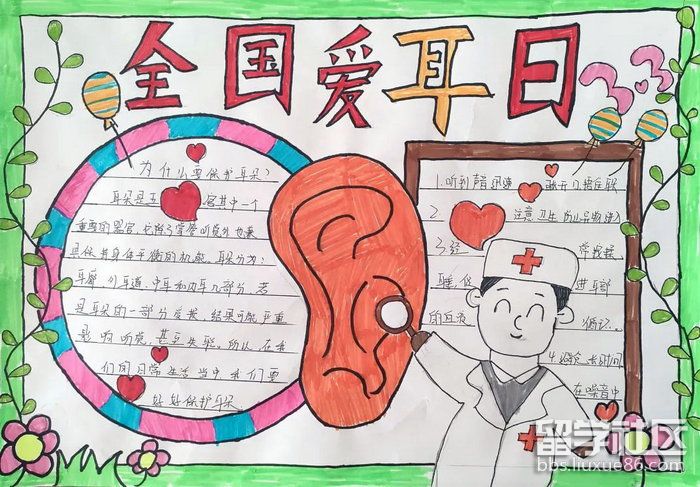 全国爱耳日
3.3
为什么要保护耳朵?
耳朵是五官其中一个
重要的器官,它除了掌管听觉外也兼
具保持身体平衡的机能。耳朵分为:
耳廓、外耳道、中耳和内耳几部分,若
是耳朵的一部分发炎,结果可能严重
影响听觉,甚至失聪。所以,在我
们的日常生活当中我们要
好好保护耳朵
1.听到声
2.注意卫生防止
3.经常
耳部
的
4.避免长时间
在噪音中
留学社区
bbs.liuxue86.com